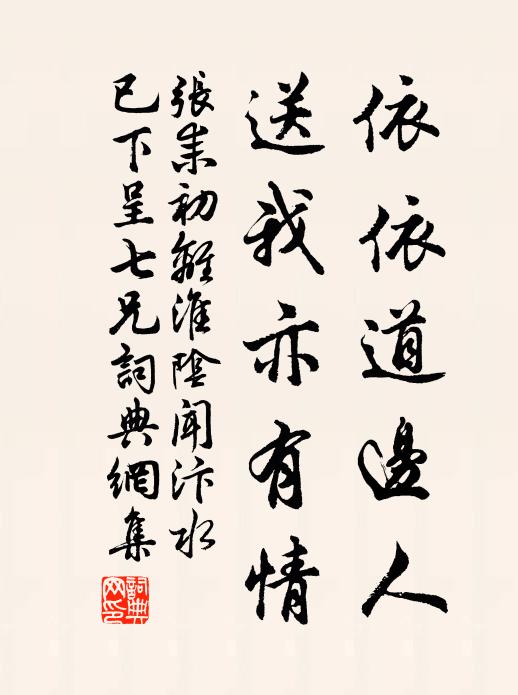 依依道邊人
送我亦有情
張耒初離淮陰聞汴水
已下呈七兄詞典網集
詞典網印